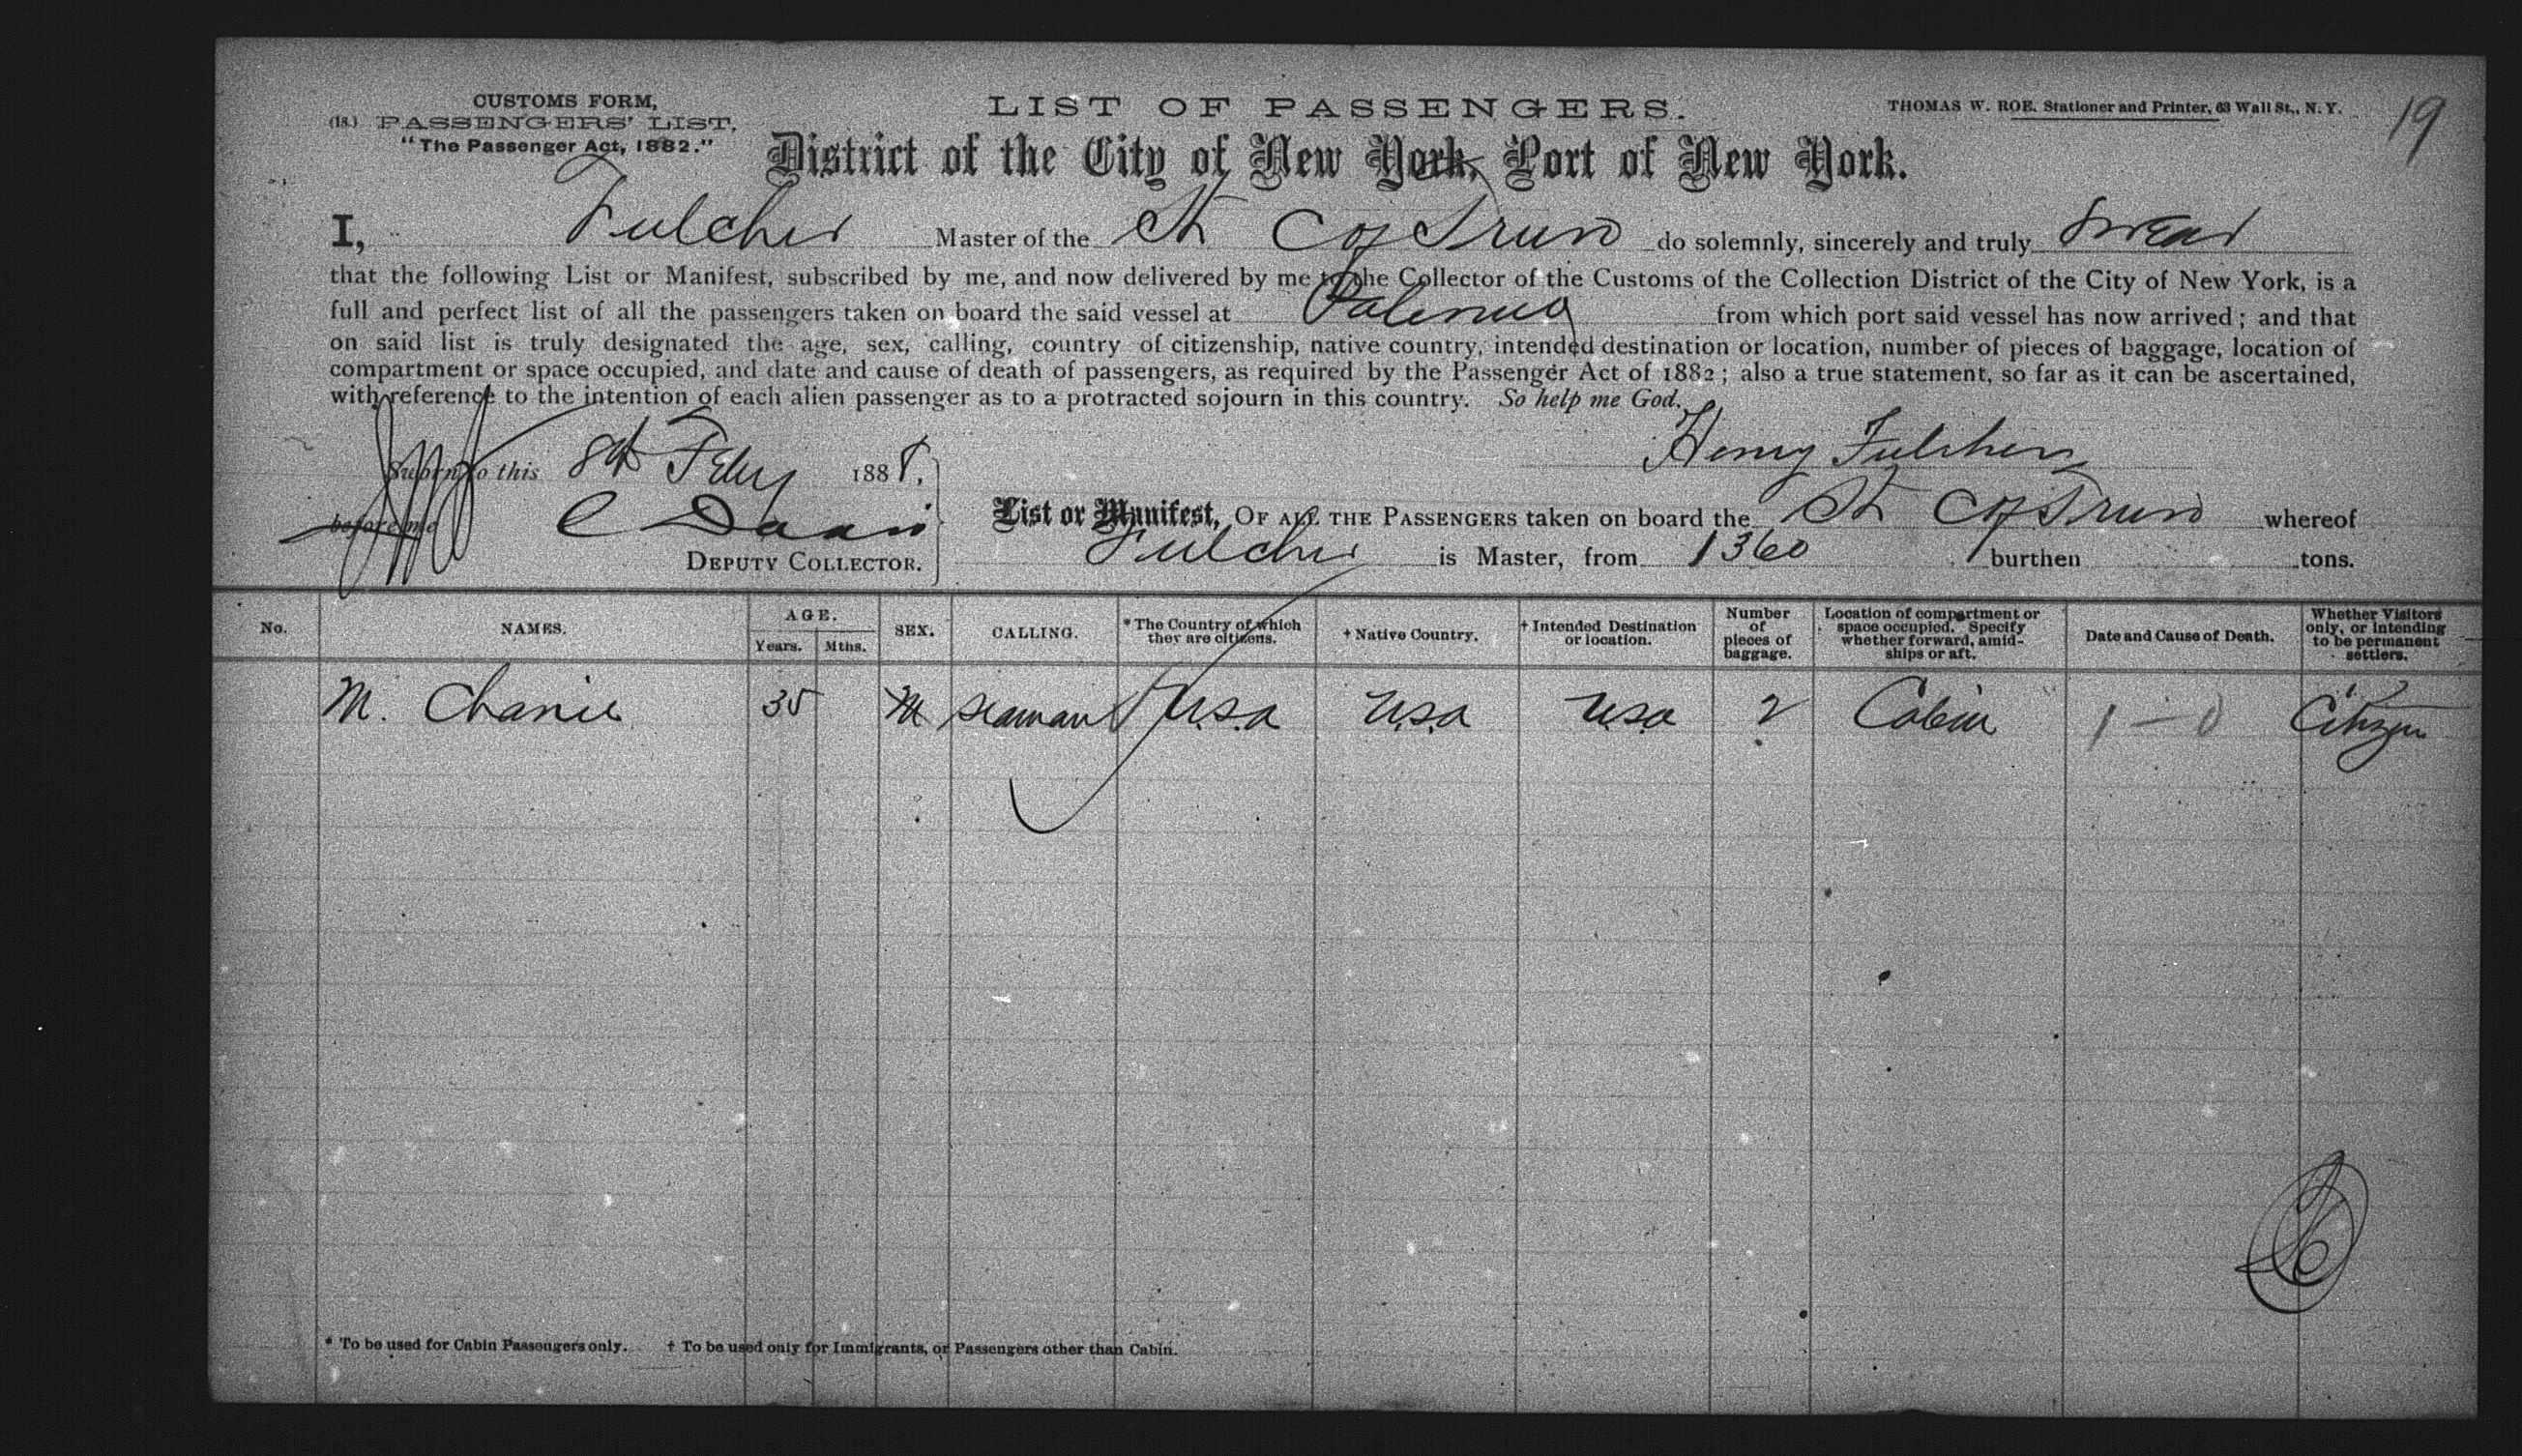 CUSTOMS FORM,
(18.) PASSENGERS' LIST,
"The Passenger Act, 1882."
LIST OF PASSENGERS.
THOMAS W. ROE, Stationer and Printer, 63 Wall St., N. Y.
19
District of the City of New York, Port of New York.
I, Fulcher Master of the St Cap Trun do solemnly, sincerely and truly swear
that the following List or Manifest, subscribed by me, and now delivered by me to the Collector of the Customs of the Collection District of the City of New York, is a
full and perfect list of all the passengers taken on board the said vessel at Palermo from which port said vessel has now arrived; and that
on said list is truly designated the age, sex, calling, country of citizenship, native country, intended destination or location, number of pieces of baggage, location of
compartment or space occupied, and date and cause of death of passengers, as required by the Passenger Act of 1882; also a true statement, so far as it can be ascertained,
with reference to the intention of each alien passenger as to a protracted sojourn in this country. So help me God.
Henry Fulcher
Sworn to this 8th Feby 1888,
before me C Davis
DEPUTY COLLECTOR.
List or Manifest, OF ALL THE PASSENGERS taken on board the St whereof
Fulcher is Master, from 1360 burthen tons.
No. NAMES. AGE. Years. Mths. SEX. CALLING. * The Country of which they are citizens. † Native Country. † Intended Destination or location. Number of pieces of baggage. Location of compartment or space occupied. Specify whether forward, amidships or aft. Date and Cause of Death. Whether Visitors only, or intending to be permanent settlers.
M. Chanie 35 M seaman U.S.a U.S.a U.S.a 2 Cabin 1 - 0 Citizen
* To be used for Cabin Passengers only. † To be used only for Immigrants, or Passengers other than Cabin.